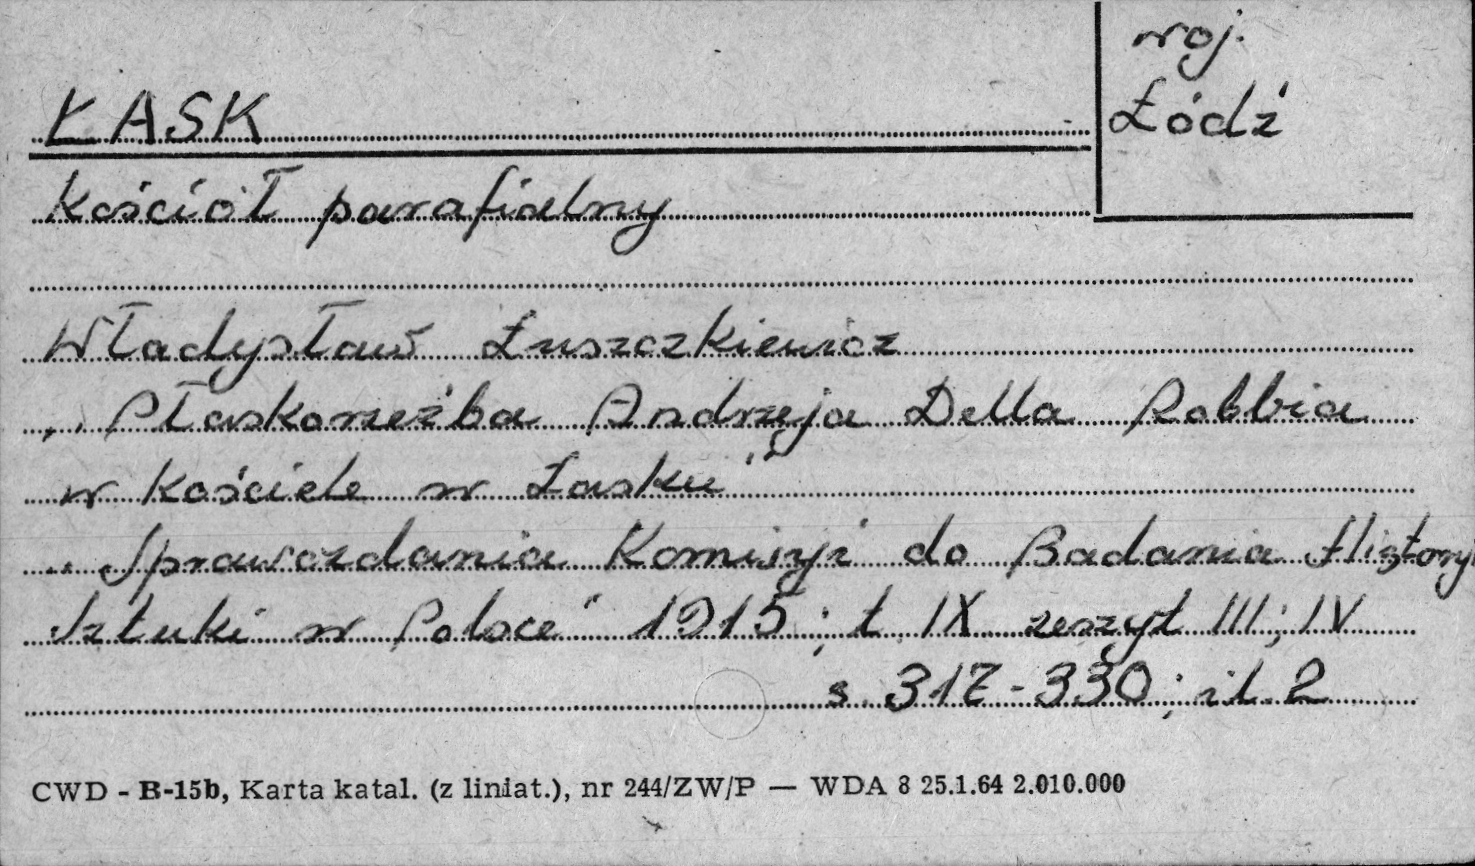 woj.
Łódź
ŁASK
Kościół parafialny
Władysław Łuszczkiewicz
„Płaskorzeźba Andrzeja Della Robbia
w Kościele w Łasku"
„Sprawozdania Komisyi do Badania History
Sztuki w Polsce" 1915; t. IX zeszyt III; IV
s. 317-330; il. 2
CWD - B-15b, Karta katal. (z liniat.), nr 244/ZW/P — WDA 8 25.1.64 2.010.000